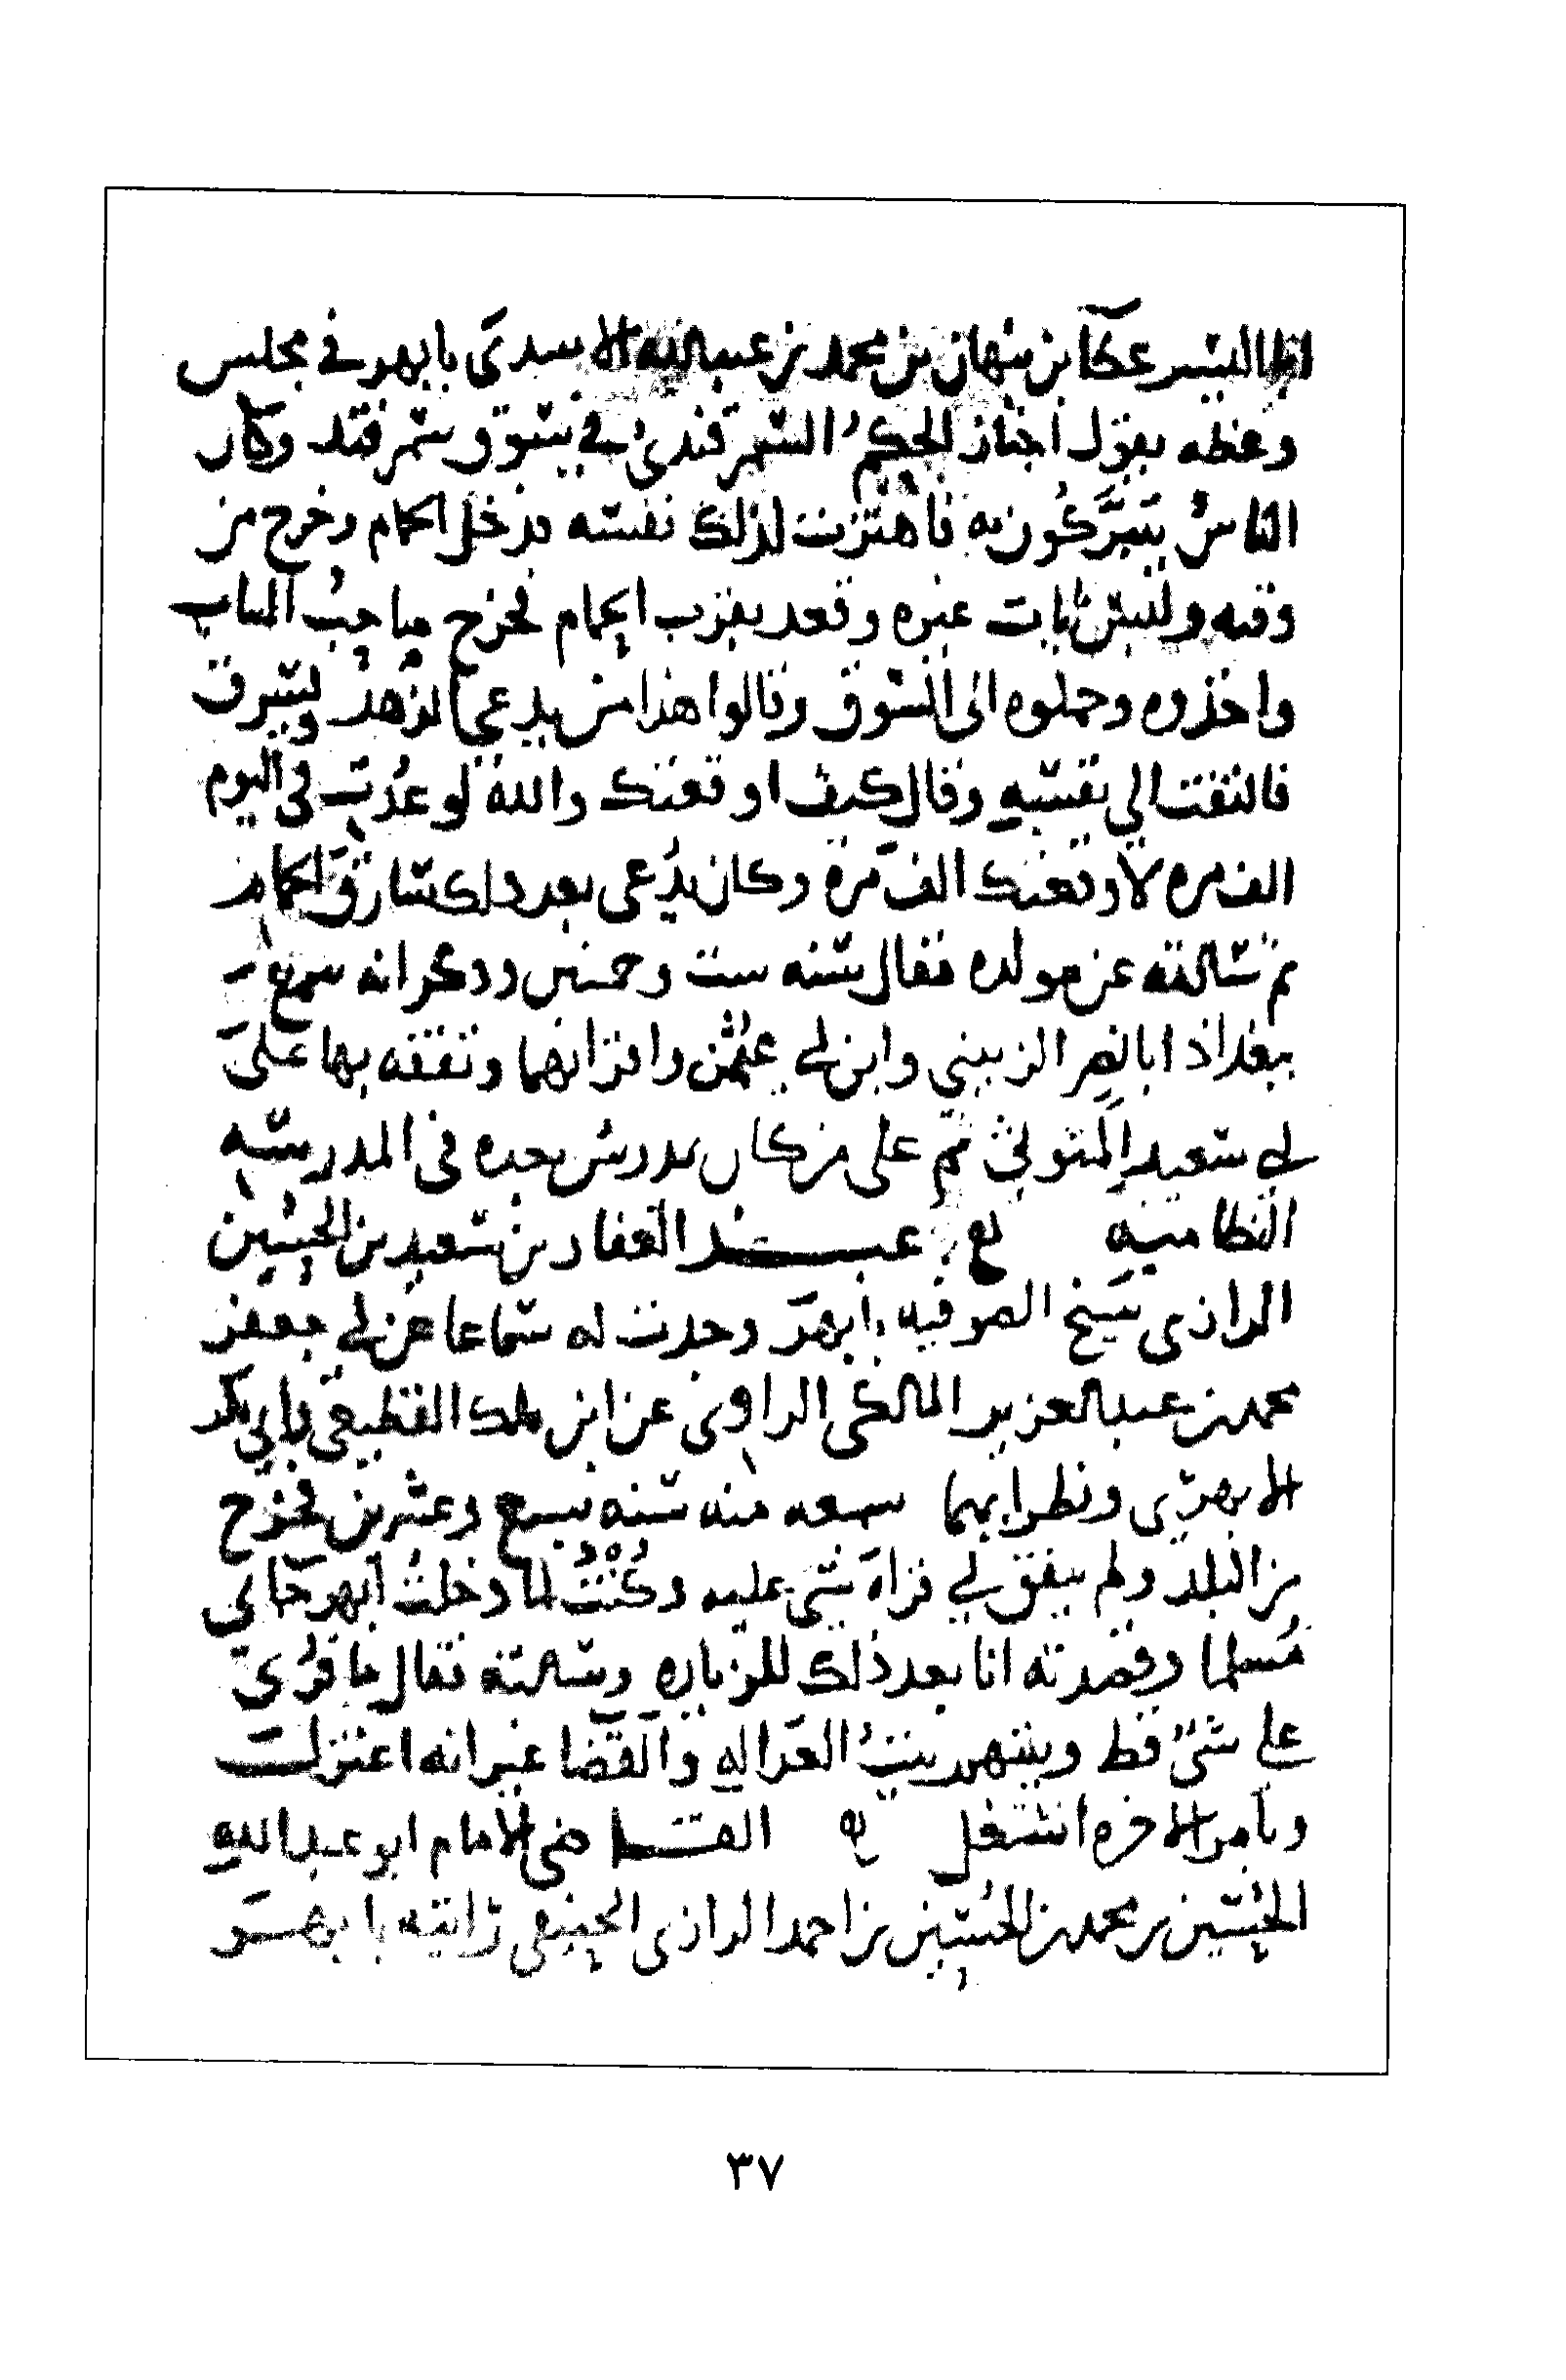 ابا اليسر عطا بن نبهان بن محمد بن عبد الله الاسدي بابهر في مجلس
وعظه يقول اجتاز الحكيمُ السمرقنديُ في سوق سمرقند وكان
الناسُ يتبرَّكُون به فاهتزت لذلك نفسه فدخل الحمام وخرج من
وقته ولبس ثياب غيره وقعد بقرب الحمام فخرج صاحبُ الثياب
واخذوه وحملوه الى السوق وقالوا هذا من يدعي الزهدَ ويسرق
فالتفت الي نفسه وقال كيف اوقعتك والله لو عُدتِ في اليوم
الف مره لاوقعتك الف مرة وكان يُدعى بعد ذلك سارق الحمام
ثم سالته عن مولده فقال سنه ست وخمسين وذكر انه سمع
ببغداذ ابا نصر الزينبي وابن ابي عثمن واقرانهما وتفقه بها على
ابي سعيد المتولي ثم على من كان يدرس بعده في المدرسه
النظاميه عبد الغفار بن سعيد بن الحسين
الرازي شيخ الصوفيه بابهر وجدت له سماعا عن ابي جعفر
محمد بن عبد العزيز المالكي الراوي عن ابن ملك القطيعي وابي بكر
الابهري ونظرايهما سمعه منه سنه سبع وعشرين فخرج
من البلد ولم يتفق لي قراة شي عليه وكُنْتُ لما دخلتُ ابهر جاني
مُسلما وقصدته انا بعد ذلك للزياره وسالته فقال ما قُرى
علي شيُ قط وبيتهم بيتُ العداله والقضا غير انه اعتزلت
وبامر الاخره اشتغل القاضي الامام ابو عبد الله
الحُسين بن محمد بن الحُسين بن احمد الرازي الحنفي رايته بابهر
٣٧